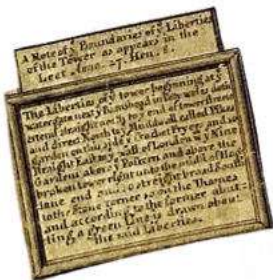 A Note of yͤ Boundaries of yͤ Liberties
of the Tower as appears in the
Leet Anno. 27. Hen. 8.
The Liberties of yͤ tower beginning at yͤ
watergate next yͤ
extend straight north to yͤ end of tower street
and directly north to yͤ mudwall called Pikes
Garden on this side of yͤ Crochet Fryers and so
straight East to yͤ wall of London wͭʰ Nine
Gardens above yͤ Postern and above the
broken tower right unto the midd of Hog
lane end and so straight broad South
to the Stone corner so on the Thames
and according to the former abut
ting a green line is drawn about
the said Liberties.